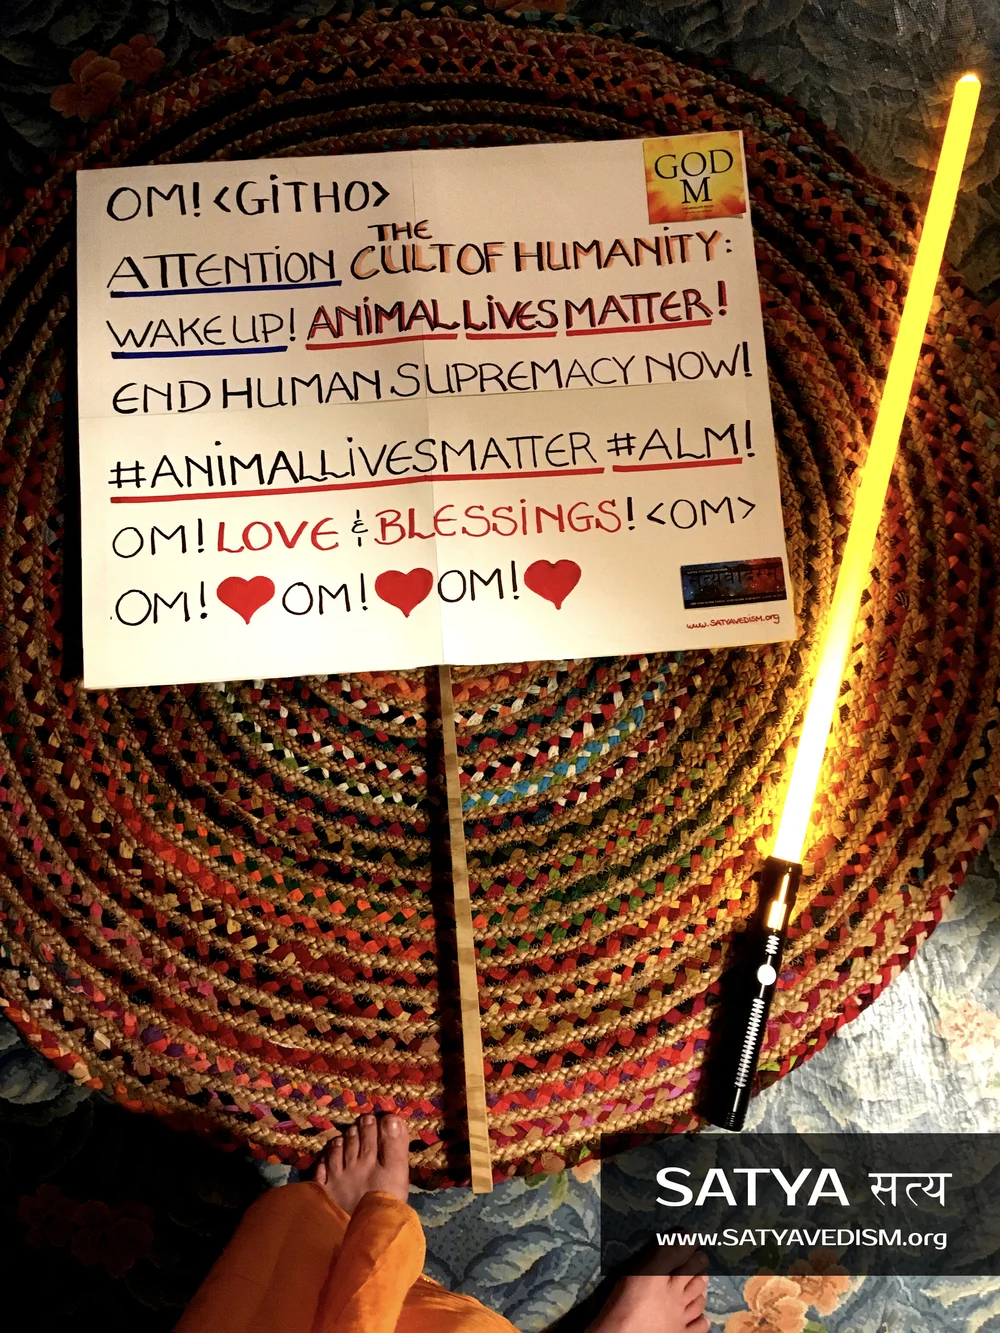 OM! <GiTHO>
GOD
M
ATTENTiON THE CULT OF HUMANiTY:
WAKE UP! ANiMAL LiVES MATTER!
END HUMAN SUPREMACY NOW!
#ANiMALLiVESMATTER #ALM!
OM! LOVE & BLESSiNGS! <OM>
OM! ❤ OM! ❤ OM! ❤
www.SATYAVEDISM.org
SATYA सत्य
www.SATYAVEDISM.org